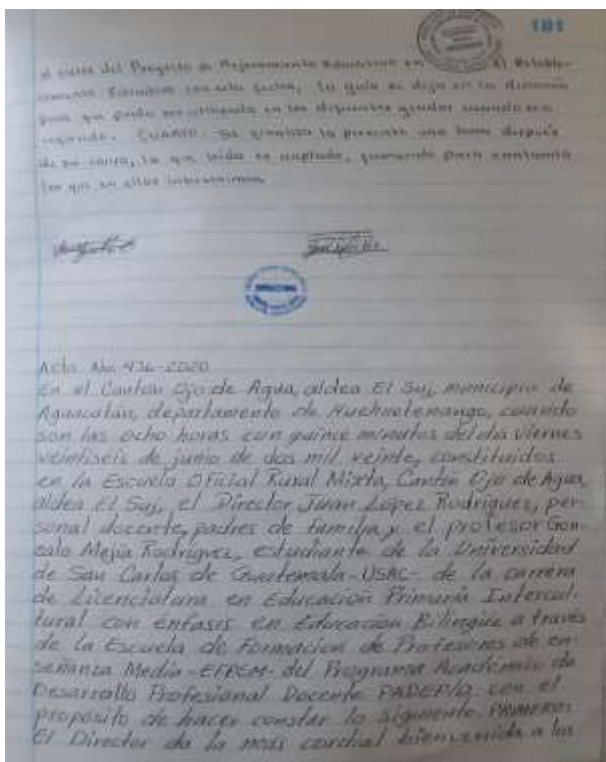 181
el cierre del Proyecto de Mejoramiento Educativo en el Estable-
cimiento Educativo con esta fecha, la guía se deja en la dirección
para que pueda ser utilizada en los diferentes grados cuando sea
requerido. CUARTO: Se finaliza la presente una hora después
de su inicio, la que leída es aceptada, firmando para constancia
los que en ella intervenimos.
Acta No. 436-2020
En el Cantón Ojo de Agua, aldea El Suj, municipio de
Aguacatán, departamento de Huehuetenango, cuando
son las ocho horas con quince minutos del día viernes
veintiseis de junio de dos mil veinte, constituidos
en la Escuela Oficial Rural Mixta, Cantón Ojo de Agua,
aldea El Suj, el Director Juan López Rodríguez, per-
sonal docente, padres de familia y el profesor Gon-
zalo Mejía Rodríguez, estudiante de la Universidad
de San Carlos de Guatemala -USAC- de la carrera
de Licenciatura en Educación Primaria Intercul-
tural con énfasis en Educación Bilingüe a través
de la Escuela de Formación de Profesores de en-
señanza Media -EFPEM- del Programa Académico de
Desarrollo Profesional Docente PADEP/D con el
propósito de hacer constar lo siguiente. PRIMERO:
El Director da la más cordial bienvenida a los